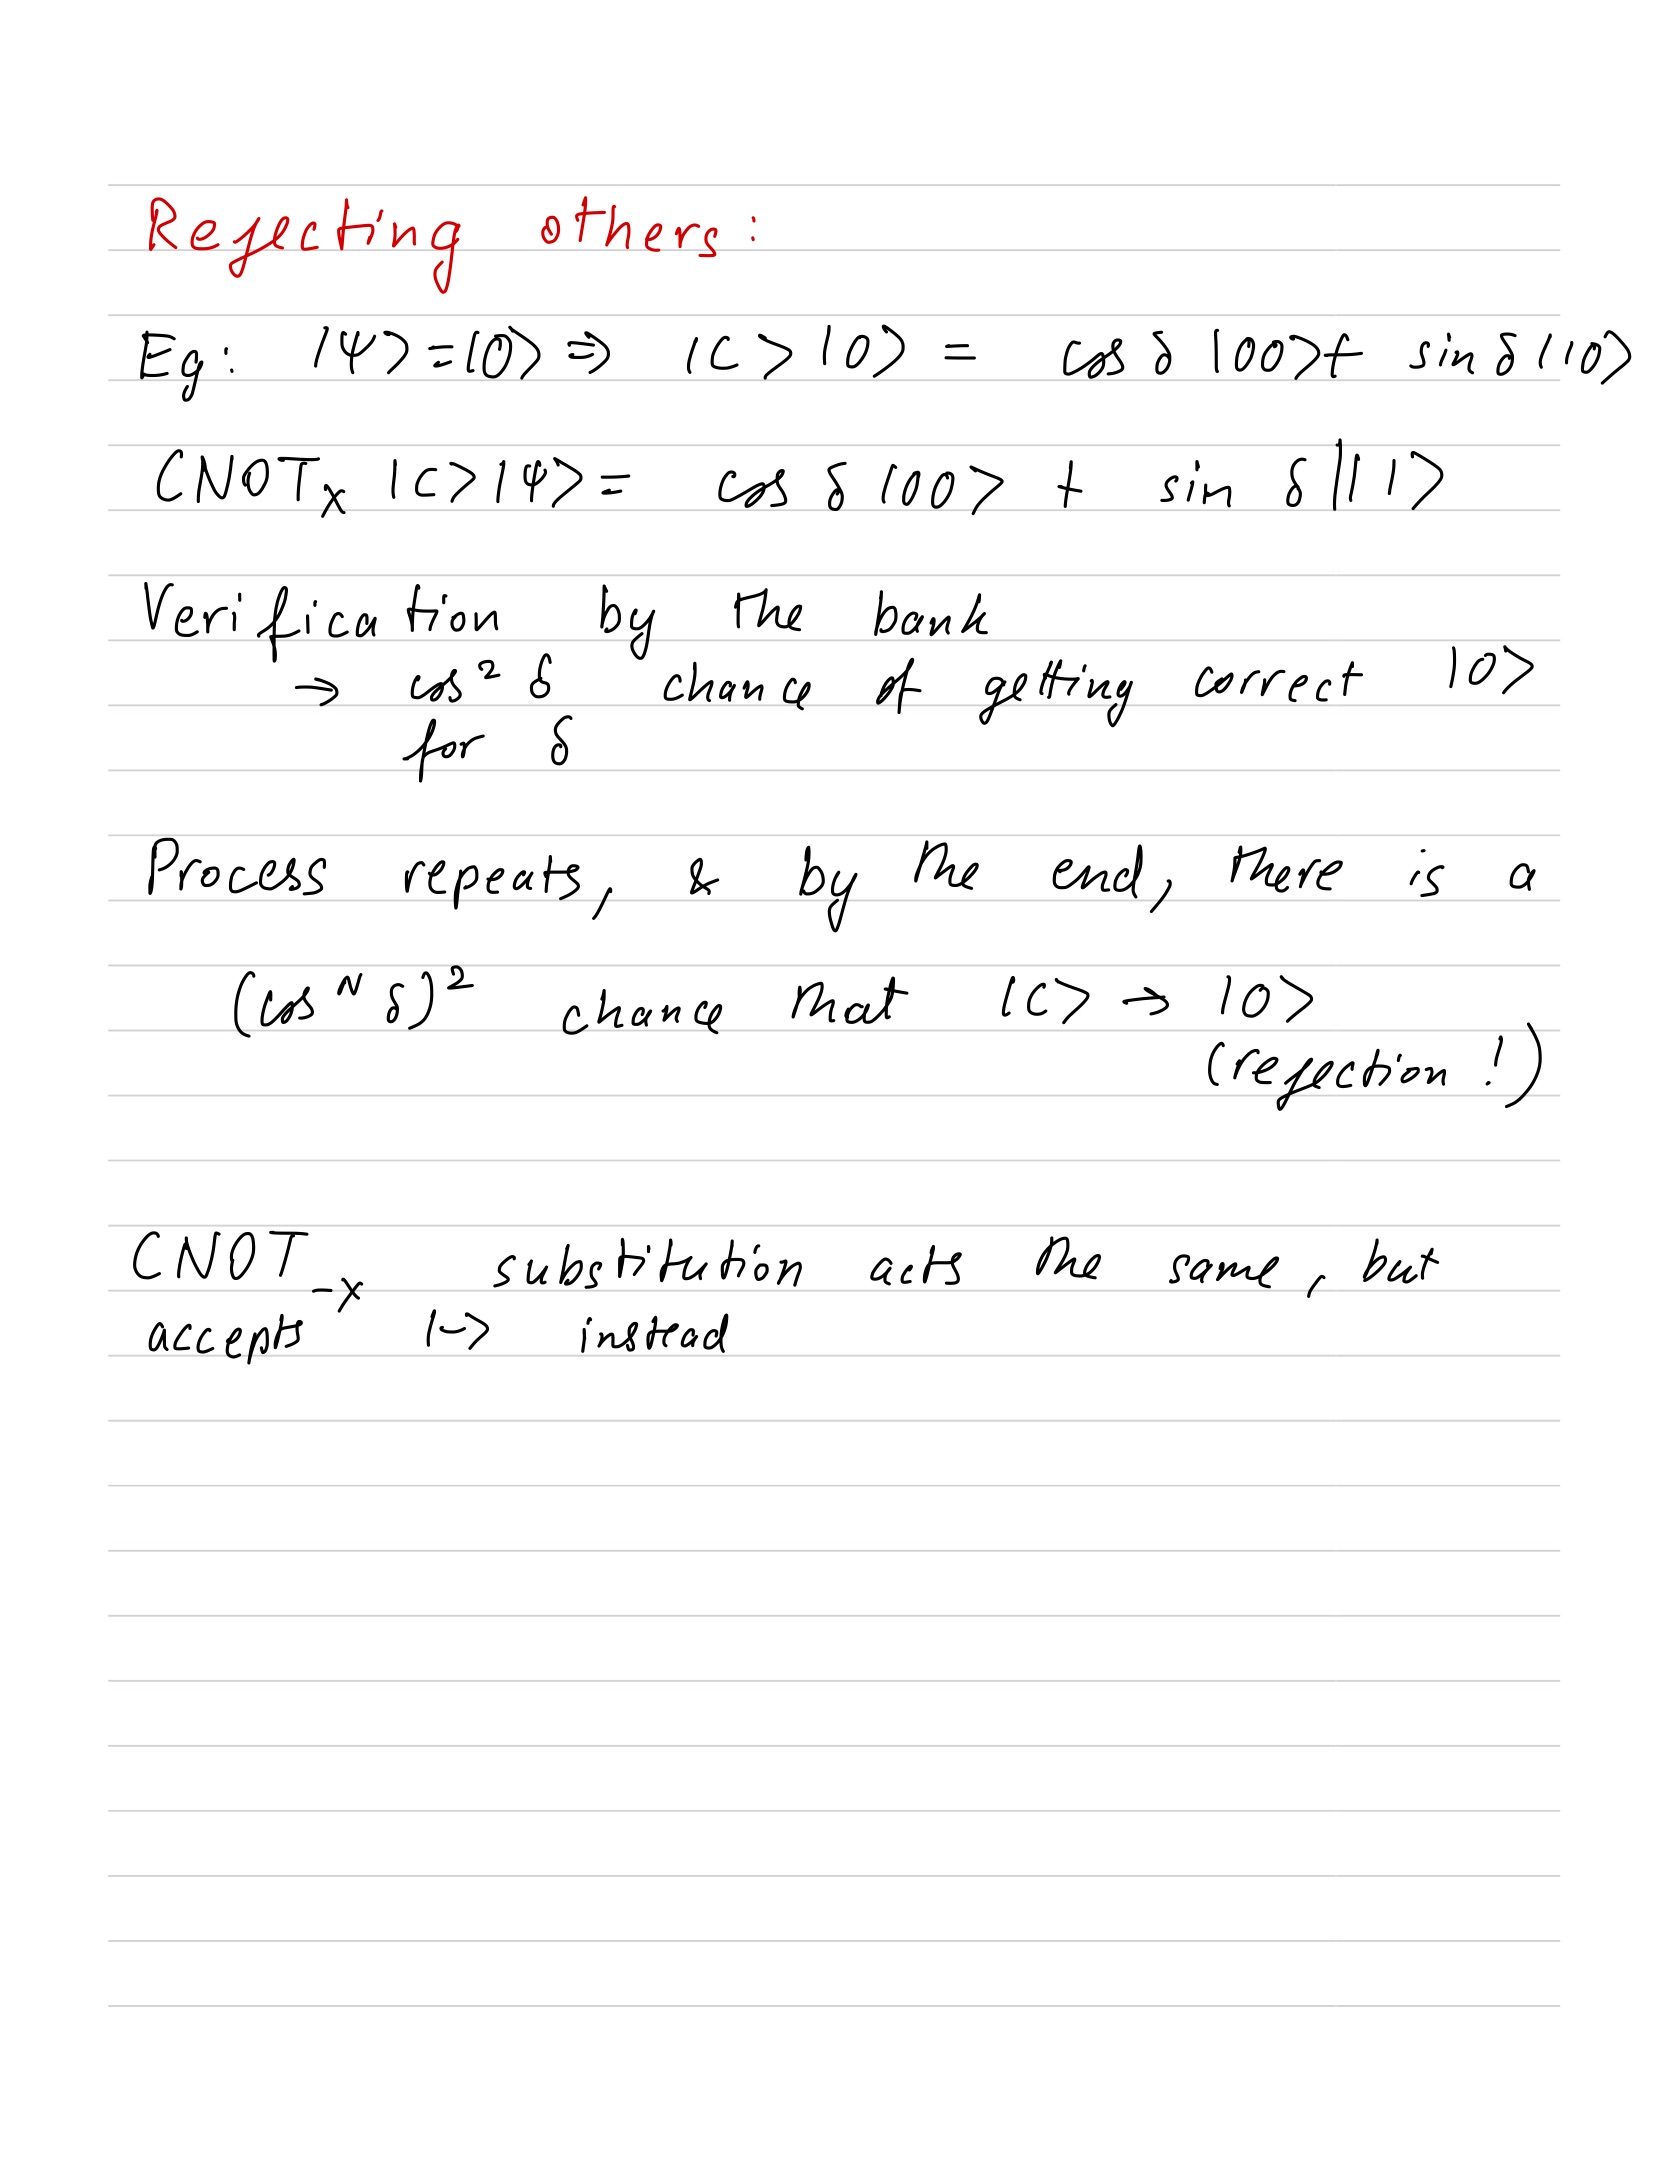 Rejecting others:
Eg: |ψ> = |0> ⇒ |C>|0> = cos δ |00> + sin δ |10>
CNOTₓ |C>|ψ> = cos δ |00> + sin δ |11>
Verification by the bank
→ cos² δ chance of getting correct |0>
for δ
Process repeats, & by the end, there is a
(cos^N δ)² chance that |C> → |0>
(rejection!)
CNOT₋ₓ substitution acts the same, but
accepts |-> instead